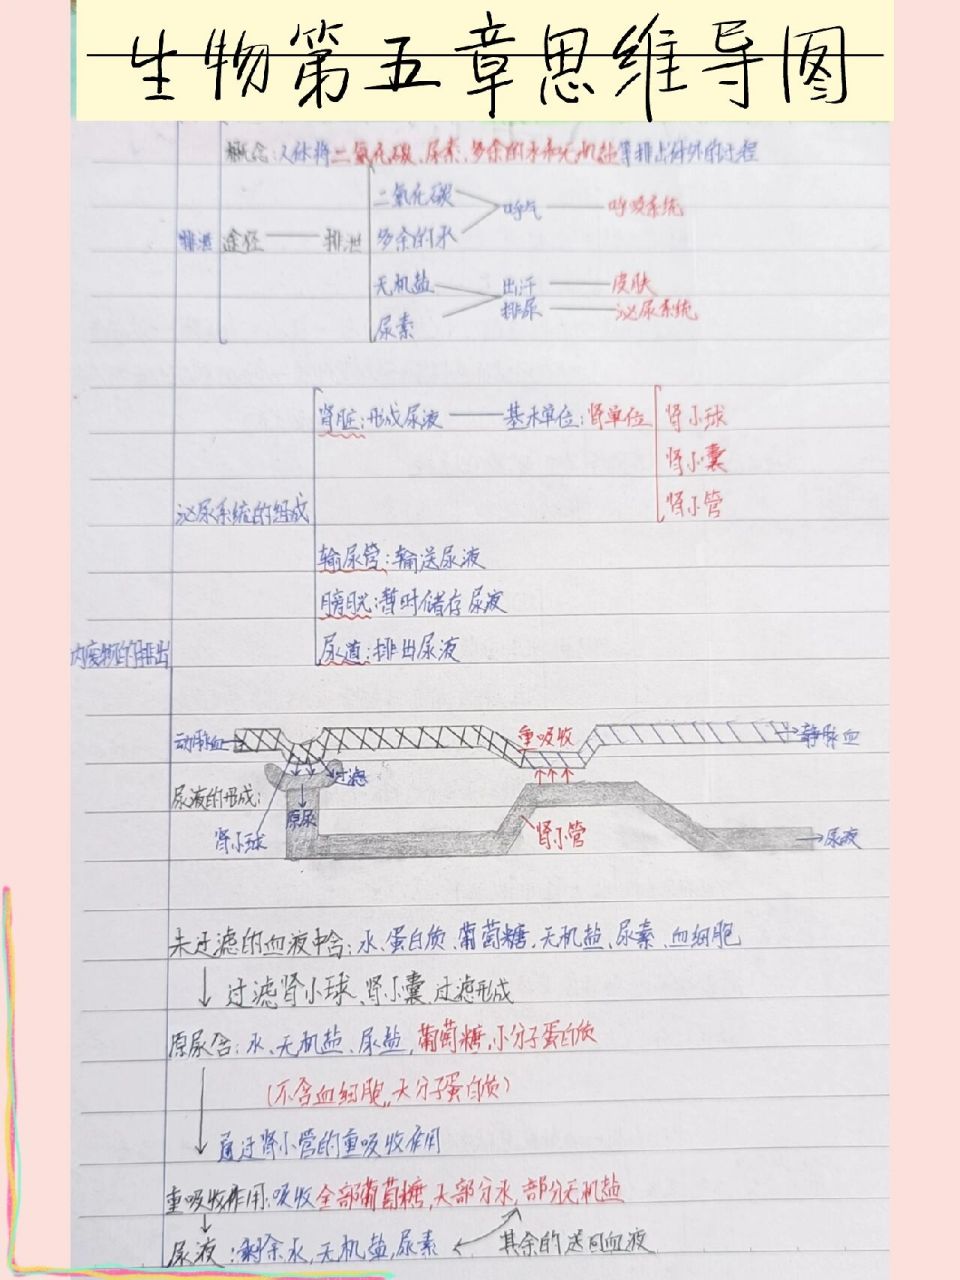 生物第五章思维导图
概念:人体将二氧化碳、尿素、多余的水和无机盐等排出体外的过程
排泄
途径
排泄
二氧化碳
多余的水
呼气
呼吸系统
无机盐
尿素
出汗
皮肤
排尿
泌尿系统
内废物的排出
泌尿系统的组成
肾脏:形成尿液
基本单位:肾单位
肾小球
肾小囊
肾小管
输尿管:输送尿液
膀胱:暂时储存尿液
尿道:排出尿液
动脉血
重吸收
静脉血
过滤
尿液的形成:
原尿
肾小球
肾小管
尿液
未过滤的血液中含:水、蛋白质、葡萄糖、无机盐、尿素、血细胞
过滤肾小球、肾小囊过滤形成
原尿含:水、无机盐、尿盐,葡萄糖,小分子蛋白质
(不含血细胞,,大分子蛋白质)
通过肾小管的重吸收作用
重吸收作用:吸收全部葡萄糖,大部分水,部分无机盐
尿液:剩余水,无机盐,尿素
其余的送回血液